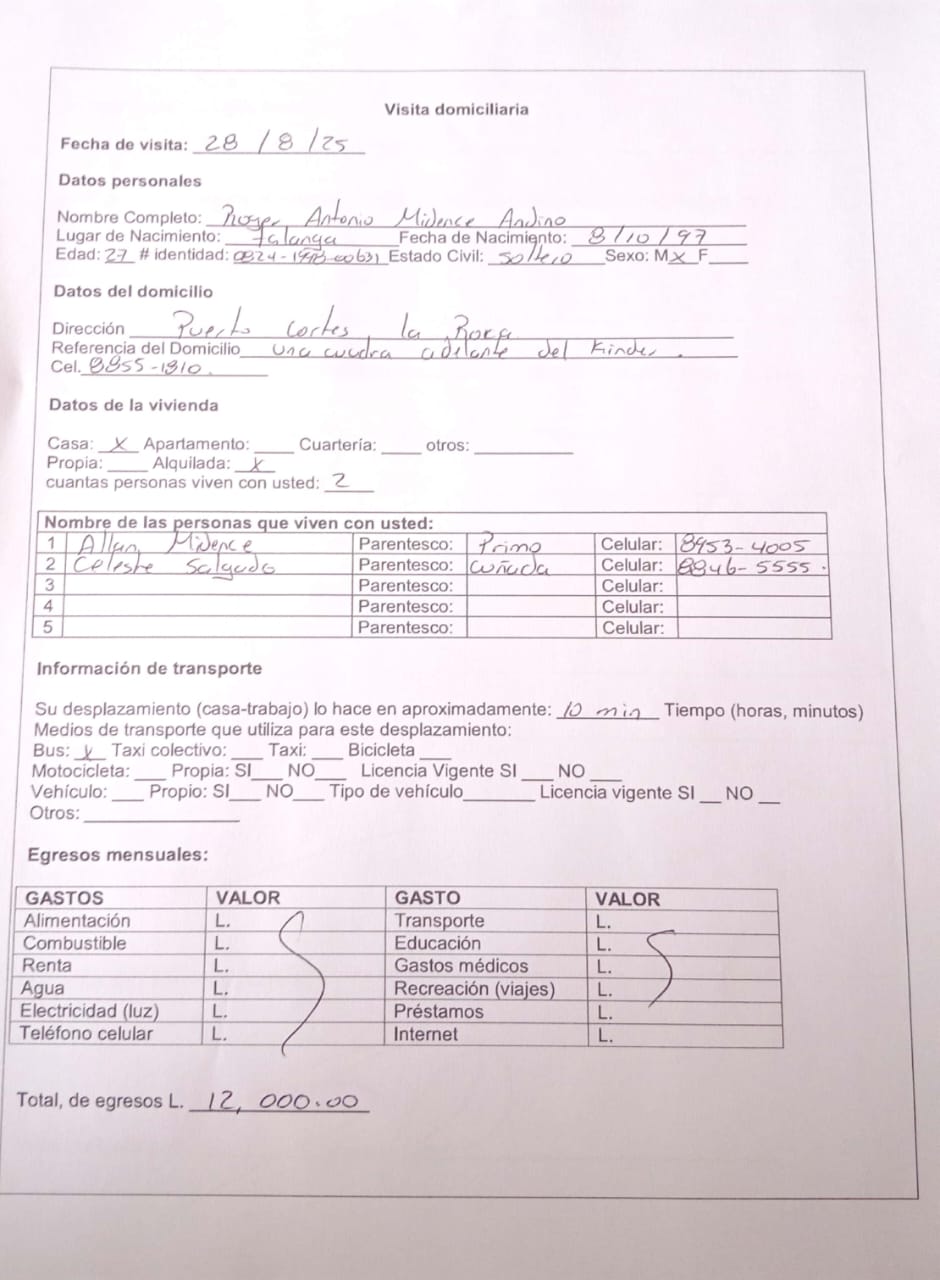 Visita domiciliaria
Fecha de visita: 28 / 8 / 25
Datos personales
Nombre Completo: Roger Antonio Midence Andino
Lugar de Nacimiento: talanga Fecha de Nacimiento: 8/10/97
Edad: 27 # identidad: Estado Civil: soltero Sexo: M X F
Datos del domicilio
Dirección Puerto Cortes la Roca
Referencia del Domicilio una cuadra adelante del Kinder.
Cel. 8855-1310.
Datos de la vivienda
Casa: X Apartamento: ____ Cuartería: ____ otros: ____
Propia: ____ Alquilada: X
cuantas personas viven con usted: 2
Nombre de las personas que viven con usted:
1 Allan Midence Parentesco: Primo Celular: 8953-4005
2 Celeste Salgado Parentesco: cuñada Celular: 8846-5555.
3 Parentesco: Celular:
4 Parentesco: Celular:
5 Parentesco: Celular:
Información de transporte
Su desplazamiento (casa-trabajo) lo hace en aproximadamente: 10 min Tiempo (horas, minutos)
Medios de transporte que utiliza para este desplazamiento:
Bus: X Taxi colectivo: ____ Taxi: ____ Bicicleta ____
Motocicleta: ____ Propia: SI____ NO____ Licencia Vigente SI ____ NO ____
Vehículo: ____ Propio: SI____ NO____ Tipo de vehículo________ Licencia vigente SI ___ NO ___
Otros: ________________
Egresos mensuales:
GASTOS VALOR GASTO VALOR
Alimentación L. Transporte L.
Combustible L. Educación L.
Renta L. Gastos médicos L.
Agua L. Recreación (viajes) L.
Electricidad (luz) L. Préstamos L.
Teléfono celular L. Internet L.
Total, de egresos L. 12,000.00